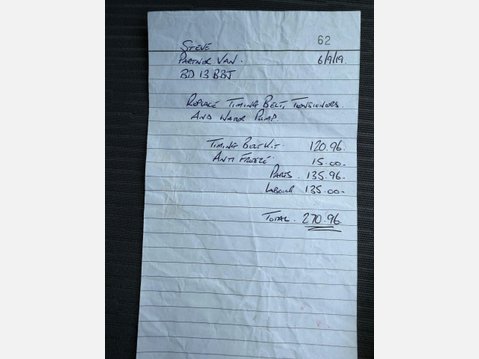 62
STEVE
PARTNER VAN. 6/9/19.
BD 13 BBJ
REPLACE TIMING BELT, TENSIONORS
AND WATER PUMP.
TIMING BELT KIT 120.96.
ANTI FREEZE 15.00.
PARTS. 135.96.
LABOUR 135.00.
TOTAL. 270.96